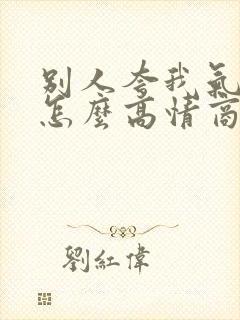 別人夸我氣
怎麼高情商
劉紅偉